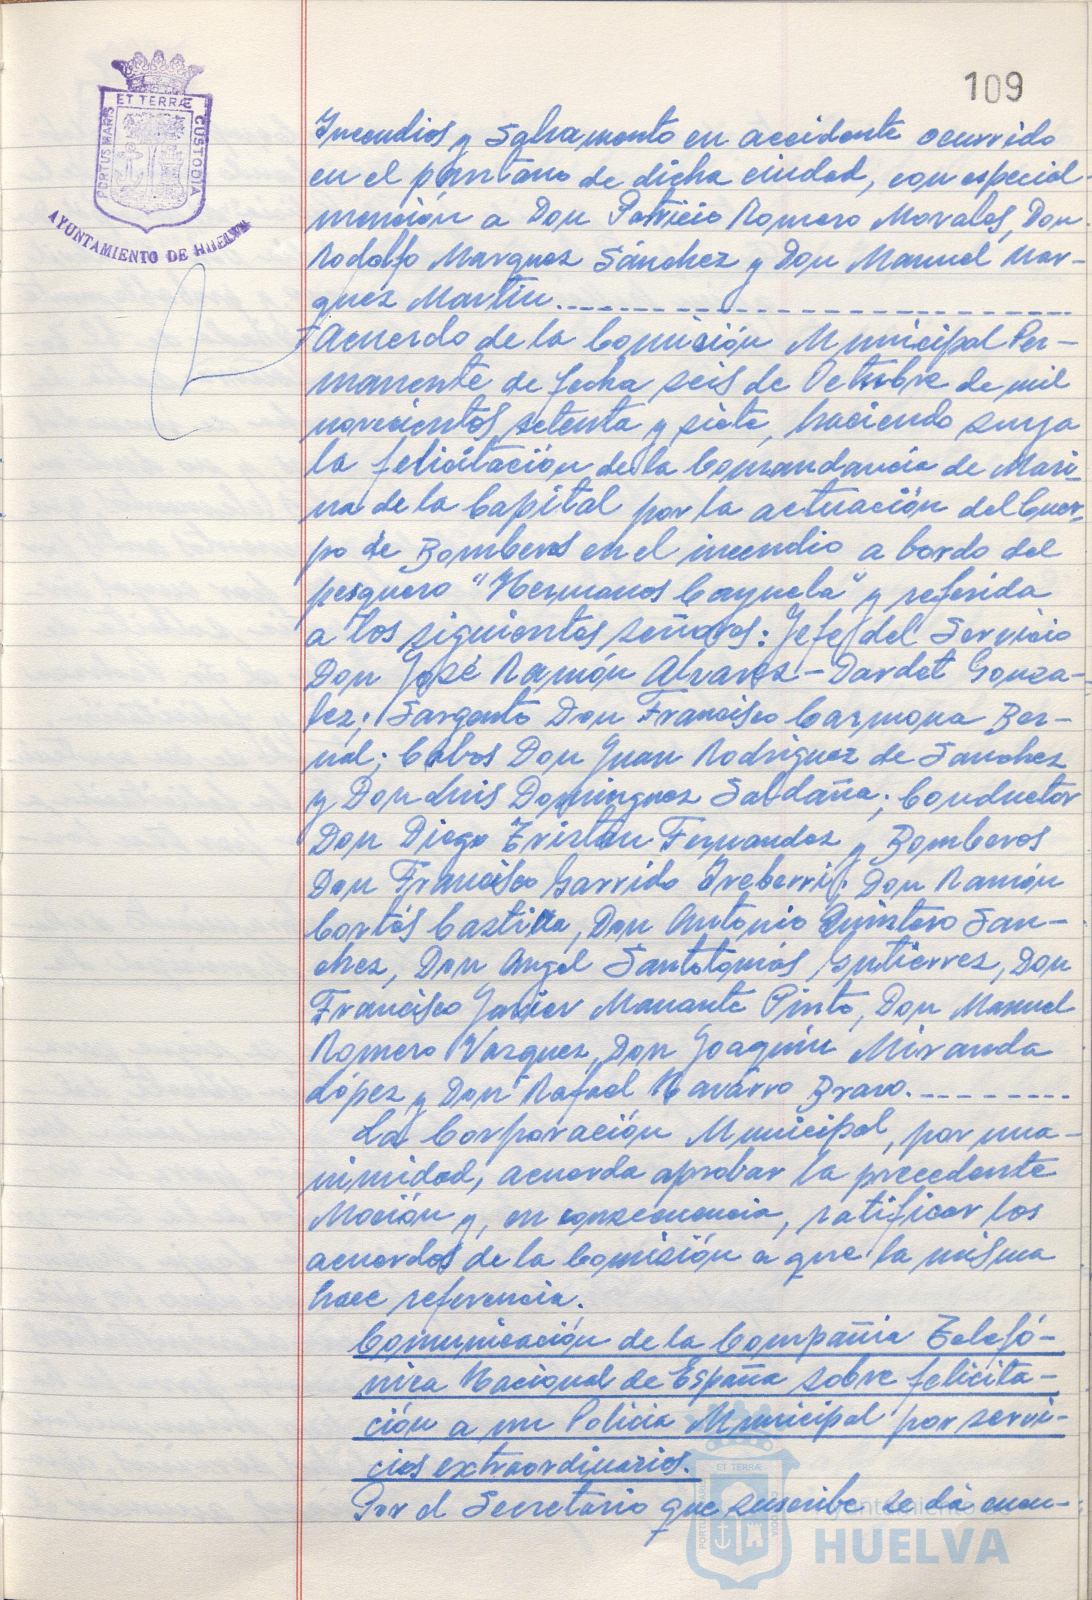 109
ET TERRÆ
PORTUS MARIS
CUSTODIA
AYUNTAMIENTO DE HUELVA
Incendios y Salvamento en accidente ocurrido
en el pantano de dicha ciudad, con especial
mención a Don Patricio Romero Morales, Don
Rodolfo Marquez Sánchez y Don Manuel Mar-
quez Martin.
Acuerdo de la Comisión Municipal Per-
manente de fecha seis de Octubre de mil
novecientos setenta y siete, haciendo suya
la felicitación de la Comandancia de Mari-
na de la Capital por la actuación del Cuer-
po de Bomberos en el incendio a bordo del
pesquero "Hermanos Cayuela" y referida
a los siguientes señores: Jefe del Servicio
Don José Ramón Alvarez-Dardet Gonza-
lez; Sargento Don Francisco Carmona Ber-
nal; Cabos Don Juan Rodriguez de Sanchez
y Don Luis Dominguez Saldaña; Conductor
Don Diego Tristán Fernandez y Bomberos
Don Francisco Garrido Ireberri; Don Ramón
Cortés Castilla, Don Antonio Quintero San-
chez, Don Angel Santotomás Gutierrez, Don
Francisco Javier Manante Pinto, Don Manuel
Romero Vazquez, Don Joaquin Miranda
López y Don Rafael Navarro Bravo.
La Corporación Municipal, por una-
nimidad, acuerda aprobar la precedente
Moción y, en consecuencia, ratificar los
acuerdos de la Comisión a que la misma
hace referencia.
Comunicación de la Compañia Telefó-
nica Nacional de España sobre felicita-
ción a un Policia Municipal por servi-
cios extraordinarios.
Por el Secretario que suscribe se dá cuen-
ET TERRÆ
Ayuntamiento de
HUELVA